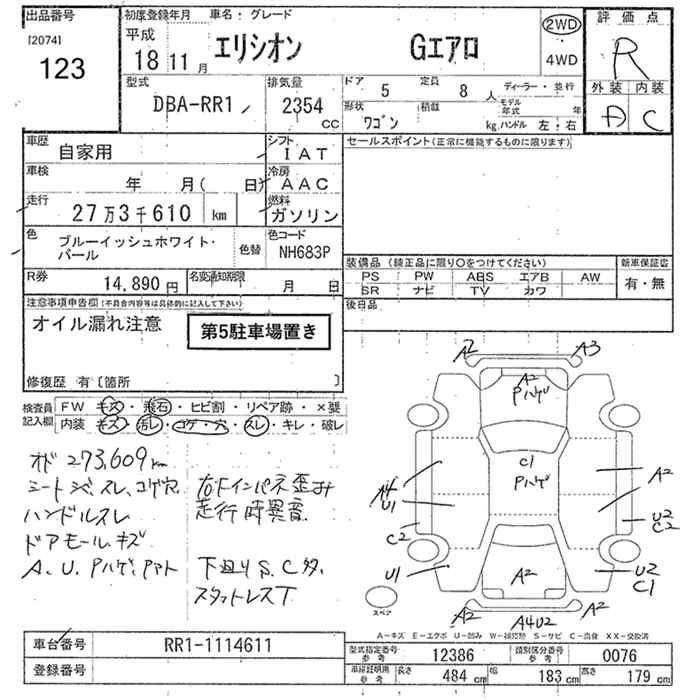 出品番号
[2074]
123
初度登録年月
平成
18 11 月
車名・グレード
エリシオン Gエアロ
2WD
・
4WD
評価点
R
外装 内装
D C
型式
DBA-RR1
排気量
2354
CC
ドア
5
定員
8
人
形状
ワゴン
積載
kg
ディーラー・並行
モデル
年式
年
ハンドル 左・右
車歴
自家用
シフト
IAT
車検
年 月( 日)
冷房
AAC
走行
27万3千610 km
燃料
ガソリン
色
ブルーイッシュホワイト・
パール
色替
色コード
NH683P
R券
14,890円
名変通知期限
月 日
セールスポイント(正常に機能するものに限ります)
装備品(純正品に限り○をつけてください)
PS PW ABS エアB AW
SR ナビ TV カワ
新車保証書
有・無
後日品
注意事項申告欄(不具合内容等は具体的に記入して下さい)
オイル漏れ注意
第5駐車場置き
修復歴 有〔箇所 〕
検査員
記入欄
FW キズ・飛石・ヒビ割・リペア跡・×要
内装 キズ・汚レ・コゲ・穴・スレ・キレ・破レ
オド 273,609km
シートシミ、スレ、コゲ穴
ハンドルスレ
ドアモール キズ
A、U、Pハゲ、
右下インパネ歪み
走行時異音
下廻りS、C多、
スタットレスT
A2 A3
A2
Pハゲ
C1
Pハゲ
A4
U1
A2
C2
U2
C2
U1
U2
C1
A2
A2 A4U2 A2
スペア
A-キズ E-エクボ U-凹み W-補修跡 S-サビ C-腐食 XX-交換済
車台番号
RR1-1114611
登録番号
型式指定番号
参考
12386
類別区分番号
参考
0076
車検証明用
参考
長さ 484 cm
幅 183 cm
高さ 179 cm